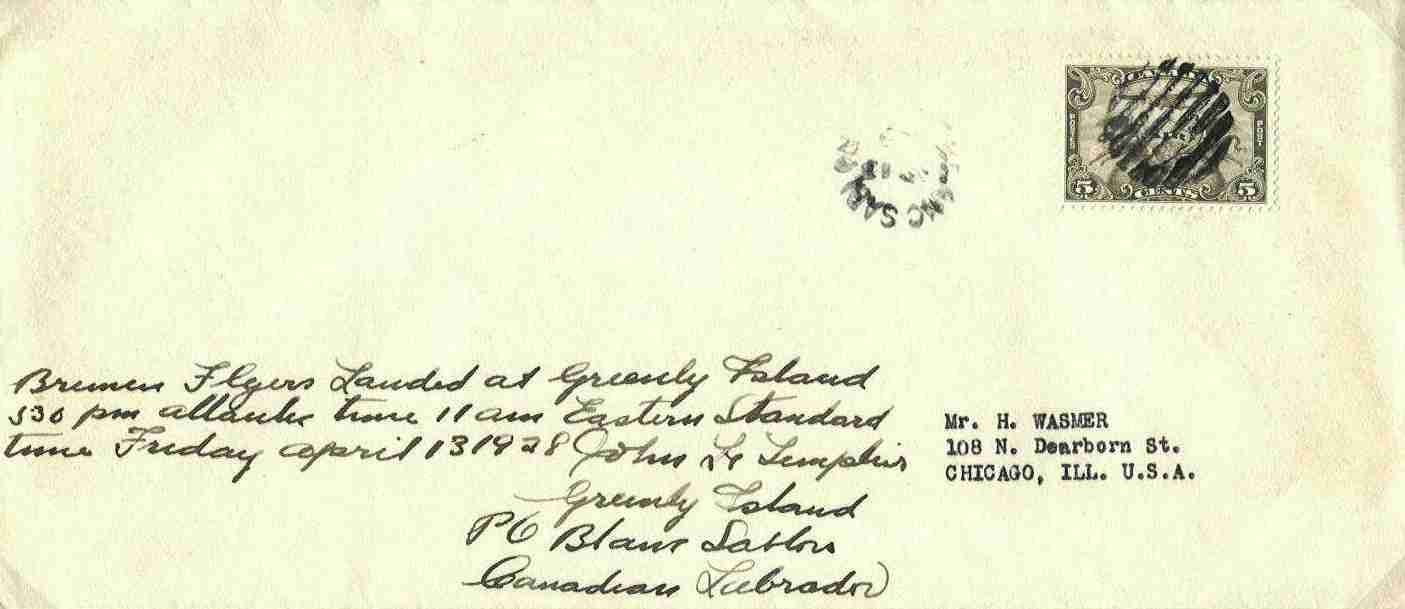 CANADA
POSTES POST
5 CENTS 5
ANC SAB
13
Bremen Flyers Landed at Greenly Island
530 pm atlantic time 11 am Eastern Standard
time Friday april 13 1928 John Le Templier
Greenly Island
PO Blanc Sablon
Canadian Labrador
Mr. H. WASMER
108 N. Dearborn St.
CHICAGO, ILL. U.S.A.